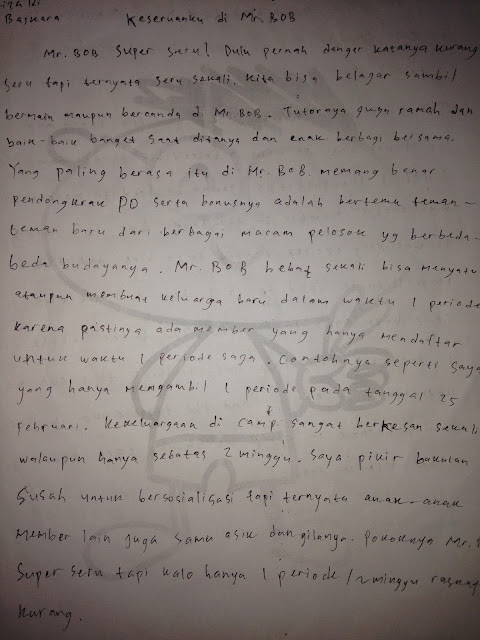 Baskara Keseruanku di Mr. BOB
Mr. BOB super seru! Dulu pernah denger katanya kurang
seru tapi ternyata seru sekali. Kita bisa belajar sambil
bermain maupun bercanda di Mr. BOB. Tutornya juga ramah dan
baik-baik banget saat ditanya dan enak berbagi bersama.
Yang paling berasa itu di Mr. BOB memang benar
pendongkrak PD serta bonusnya adalah bertemu teman-
teman baru dari berbagai macam pelosok yg berbeda-
beda budayanya. Mr. BOB hebat sekali bisa menyatu
ataupun membuat keluarga baru dalam waktu 1 periode
karena pastinya ada member yang hanya mendaftar
untuk waktu 1 periode saja. Contohnya seperti saya
yang hanya mengambil 1 periode pada tanggal 25
Februari. Kekeluargaan di camp sangat berkesan sekali
walaupun hanya sebatas 2 minggu. Saya pikir bakalan
susah untuk bersosialisasi tapi ternyata anak-anak
member lain juga sama asik dan gilanya. Pokoknya Mr.
Super seru tapi kalo hanya 1 periode/2 minggu rasany
kurang.